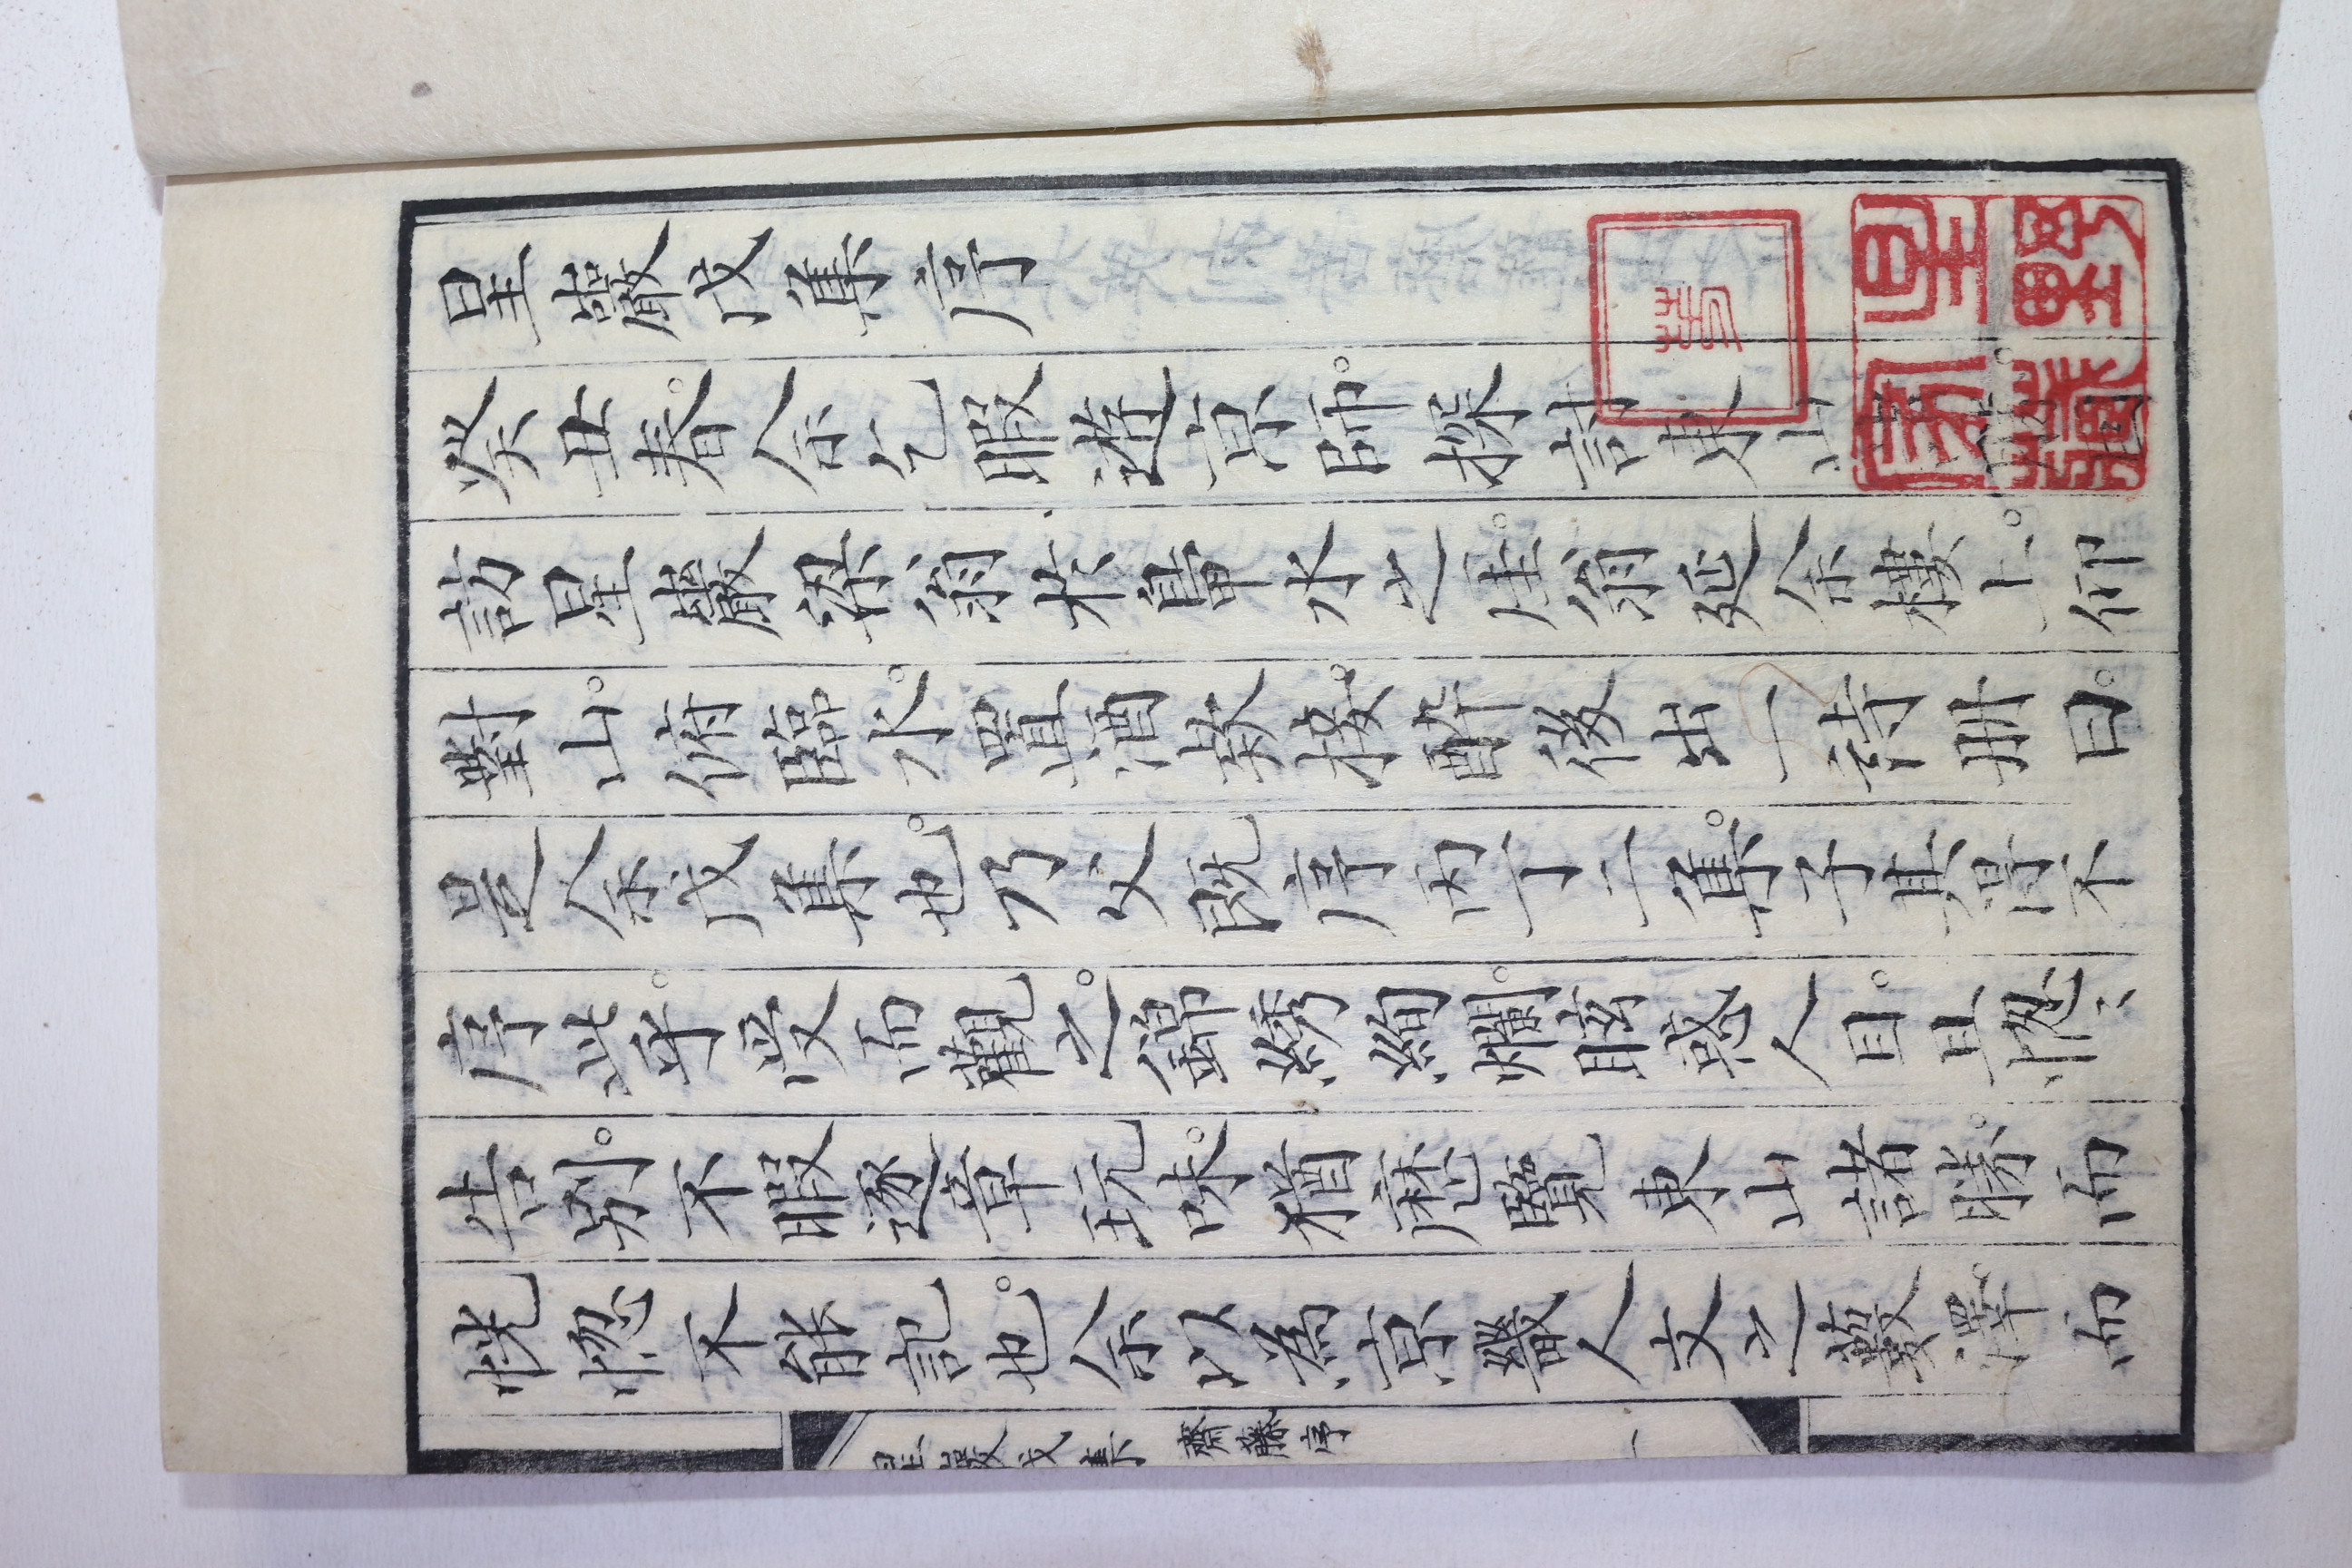 星巖戊集序
癸丑春。余乞暇遊京師。探討東山勝。因
訪星巖梁翁於鴨水之崖。翁延余樓上。仰
對山。俯臨水。置酒欵接。醉後出一詩册曰。
是余戊集也。乃父既序丙丁二集。子其得不
序此乎。受而觀之。錦綉絢爛。眩惑人目。且惚〻
告別。不暇逐章玩味。猶歴覽東山諸勝。而
恍惚不能記也。余以為京畿人文之藪澤。而
星巖戊集 齋藤序 一
星野家藏